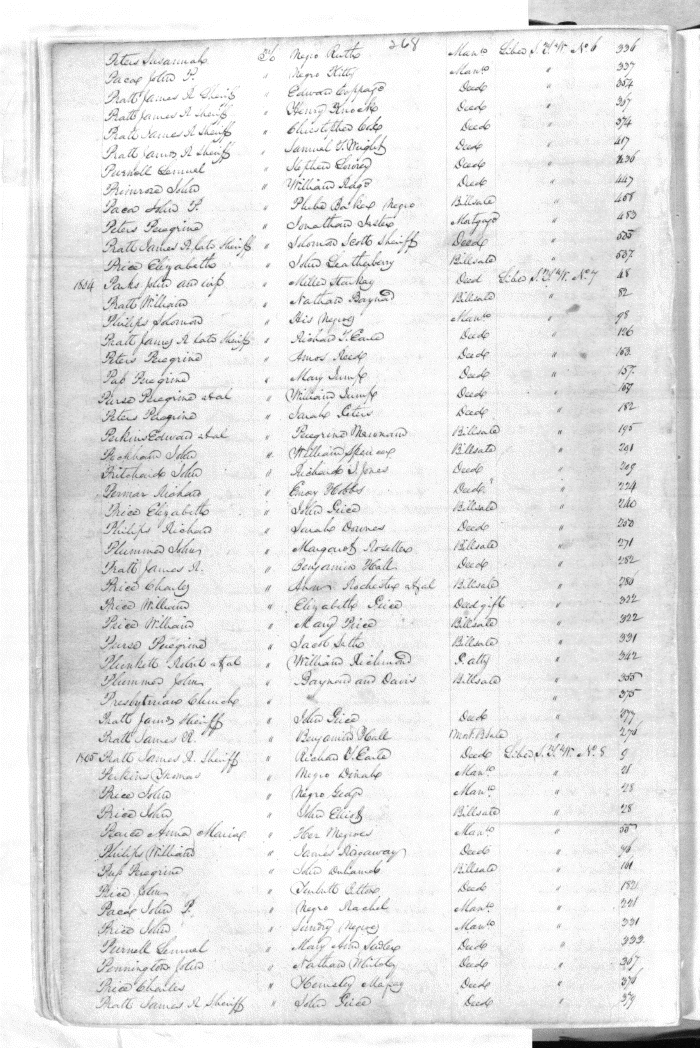 268
Peters Susannah To Negro Ruth Man.o Liber J.T.W. No 6 336
Paca John P. " Negro Kitty Man.o " 337
Pratt James R Sheriff " Edward Coppage Deed " 354
Pratt James R Sheriff " Henry Knock Deed " 367
Pratt James R Sheriff " Christopher Cox Deed " 374
Pratt James R Sheriff " Samuel T. Wright Deed " 417
Purnell Lemuel " Stephen Lowrey Deed "
Primrose John " William Deed " 447
Paca John P. " Phebe Negro Billsale " 458
Peters Peregrine " Jonathan Mortgage " 483
Pratt James R. late Sheriff " Solomon Scott Sheriff Deed " 535
Price Elizabeth " John Leatherbery Billsale " 537
1834 Parks John and wife " Miller Mackay Deed Liber J.T.W. No. 7 48
Pratt William " Nathan Baynard Billsale " 82
Philips Solomon " His Negroes Man.o " 98
Pratt James R late Sheriff " Richard T. Earle Deed " 126
Peters Peregrine " Amos Reed Deed " 153
Pap Peregrine " Mary Jump Deed " 157
Pierse Peregrine et al " William Jump Deed " 167
Peters Peregrine " Sarah Peters Deed " 182
Perkins Edward et al " Peregrine Billsale " 195
John " William Spencer Billsale " 201
Pritchard John " Richard I. Jones Deed " 209
Permar Richard " Emory Hobbs Deed " 224
Price Elizabeth " John Price Billsale " 240
Philips Richard " Sarah Downes Deed " 250
Plummer John " Margaret Rosetter Billsale " 271
Pratt James R. " Benjamin Hall Deed " 282
Price Charles " Abner Rochester et al Billsale " 286
Price William " Elizabeth Price Deed gift " 322
Price William " Mary Price Billsale " 322
Pearse Peregrine " Jacob Seth Billsale " 331
Plunkett Robert et al " William Richmond " 342
Plummer John " Baynard and Davis Billsale " 355
Presbyterian Church " " 375
Pratt James Sheriff " John Price Deed " 377
Pratt James R. " Benjamin Hall " 276
1835 Pratt James R. Sheriff " Richard T. Earle Deed Liber J.T.W. No. 8 9
Perkins Thomas " Negro Dinah Man.o " 21
Price John " Negro George Man.o " 28
Price John " John Elliott Billsale " 28
Anna Maria " Her Negroes Man.o " 55
Philips William " James Ringaway Deed " 96
Pap Peregrine " John Billsale " 161
Price John " Deed " 182
Paca John P. " Negro Rachel Man.o " 221
Price John " Sundry Negroes Man.o " 331
Purnell Lemuel " Mary Ann Sudler Deed " 333
Pennington John " Nathan Deed " 367
Price Charles " Hemsley Deed " 376
Pratt James R Sheriff " John Price Deed " 379